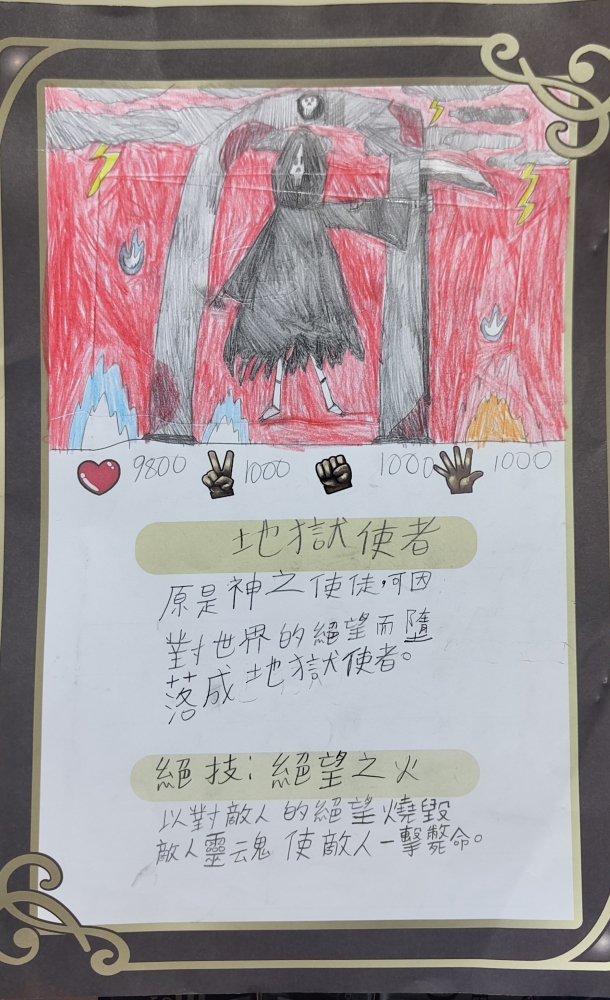 9800 1000 1000 1000
地獄使者
原是神之使徒,可因
對世界的絕望而隨
落成地獄使者。
絕技:絕望之火
以對敵人的絕望燒毀
敵人靈魂 使敵人一擊斃命。